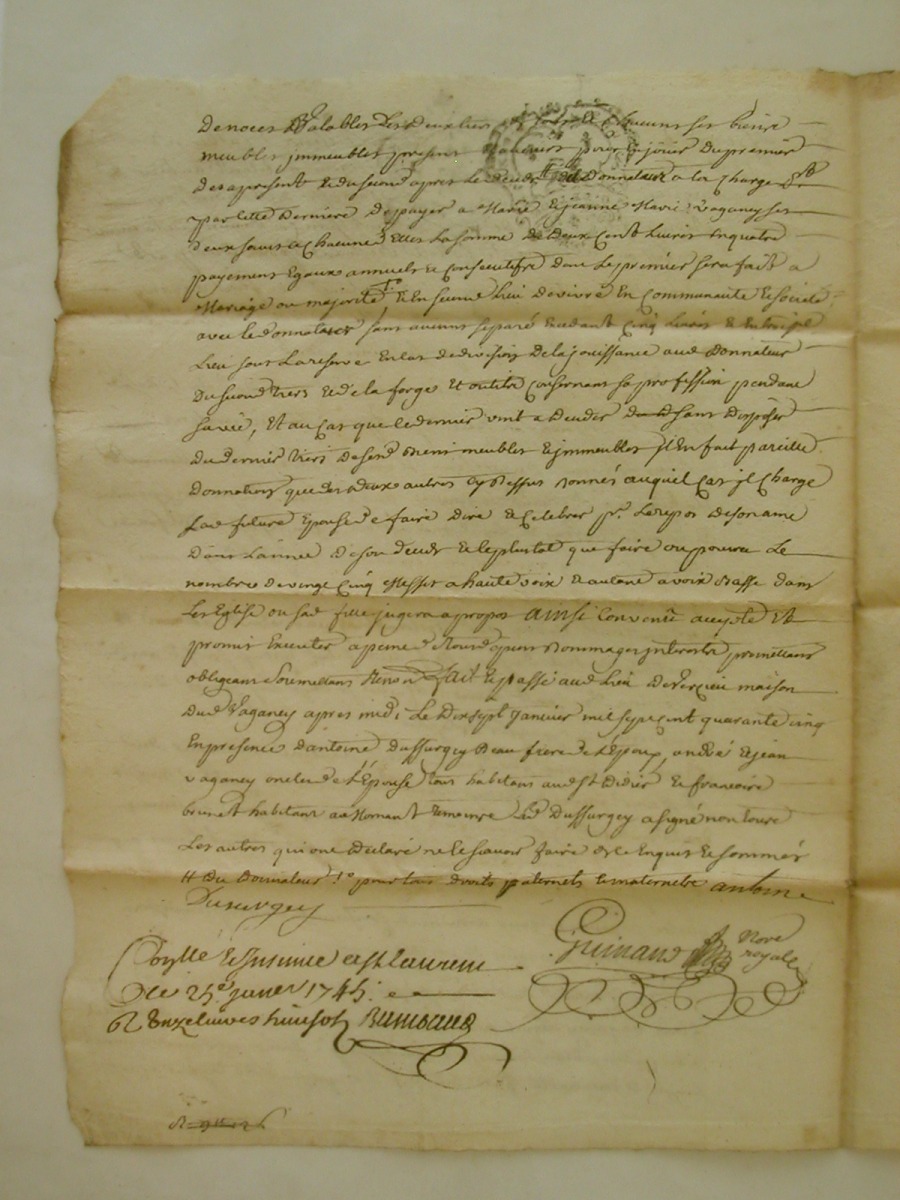 De noces Valables Les deux tiers de tous & Chacuns ses biens
meubles immeubles presens & advenirs pour En jouir du premier
Des apresent & du second apres le deceds # dud Donnateur a la Charge
par cette Derniere De payer a Marie & jeanne Marie Vaganey ses
deux sœurs a Chacune d'Elles La somme de Deux Cent Livres En quatre
payement Egaux annuels & Consecutifs Dont Le premier sera fait a
Mariage ou majorité & En second Lieu De vivre En Communauté & societé
avec le donnateur sans aucuns separé Excedant Cinq Livres &
Lieu sous La reserve En Cas de division de la jouissance aud Donnateur
Du second tiers & de la forge Et outils Consernant sa profession pendant
sa vie, Et au Cas que le dernier vint a Deceder sans Disposer
Du dernier tiers De sesd Biens meubles & immeubles il En fait pareille
Donnation que des deux autres Cy dessus Donnés auquel Cas il Charge
Lad future Epouse de faire dire & Celebrer pr. Le repos de son ame
Dans L'année De son deceds & le plustot que faire ce pourra Le
nombre de vingt Cinq Messes a haute voix & autant a voix Basse dans
Les Eglise ou sad fille jugera a propos ainsi Convenu accepté Et
promis Executer a peine de Tous depens Dommages interests promettans
obligeans soumettans Renon Fait & passé aud Lieu de Vercieu maison
Dud Vaganey apres midi Le Dix sept Janvier mil sept cent quarante cinq
En presence d'antoine Dussurgey Beau frere de L'Epoux, André & jean
Vaganey oncles de L'Epouse tous habitans aud St Didier & francoise
brunet habitans a Mornant temoins Led Dussurgey a signé non toute
Les autres qui ont Declaré ne le scavoir faire de ce Enquis & sommés
# Du Donnateur pour tous droits paternels & maternels antoine
Dusurgey
Guinand Nore royal
Conttlé & Insinué a St Laurent
Le 25e janer 1745.